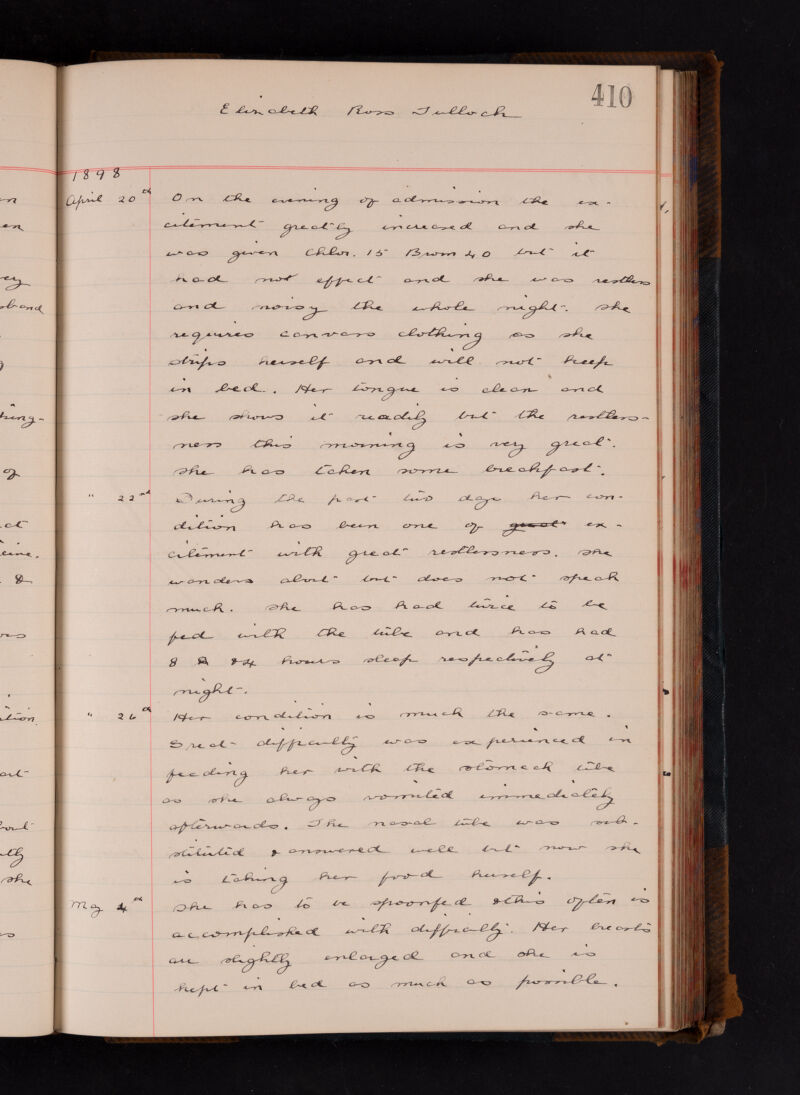 410
Elizabeth Ross Tulloch
1898
April 20th On the evening of admission the ex-
citement greatly increased and she
was given Chlor. 15 Brom 40 but it
had not effect and she was restless
and noisy the whole night. She
requires canvass clothing as she
strips herself and will not keep
in bed. Her tongue is clean and
she shows it readily but the restless-
ness this morning is very great.
She has taken some breakfast.
" 22nd During the past two days her con-
dition has been one of great ex-
citement with great restlessness. She
wanders about but does not speak
much. She has had twice to be
fed with the tube and has had
8 & 4 hours sleep respectively at
night.
" 26th Her condition is much the same.
Great difficulty was experienced in
feeding her with the stomach tube
as she always vomited immediately
afterwards. The nasal tube was sub-
stituted & answered well but now she
is taking her food herself.
May 4th She has to be spoonfed & this often is
accomplished with difficulty. Her breasts
are slightly enlarged and she is
kept in bed as much as possible.